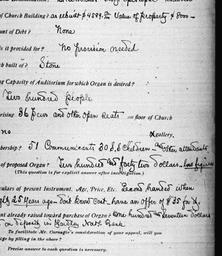 of Church Building, as rebuilt $4589. Value of Property $ 8000
unt of Debt? None
is it provided for? No provision needed
ch built of? Stone
ng Capacity of Auditorium for which Organ is desired?
Two hundred people
rising 36 Pews and other open seats on floor of Church
no Gallery,
bership? 51 Communicants 30 S.S. Children other attendants
of proposed Organ? Two hundred forty two Dollars.
(This question is for explicit answer after investigation.)
lars of present Instrument. Age, Price, Etc. hands when
25 years ago. have an offer of $25 for it,
nt already raised toward purchase of Organ? One hundred Seventeen Dollars
on deposit in Bank
To facilitate Mr. Carnegie's consideration of your appeal, will you
ge by filling in the above?
Precise answer to each question is necessary.